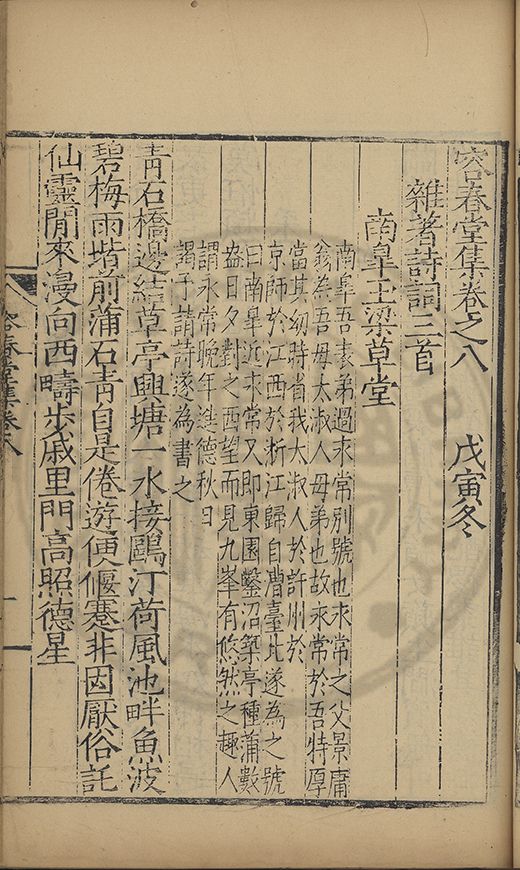 容春堂集卷之八　戊寅冬
雜著詩詞三首
南皐王梁草堂
南皐吾表弟過永常別號也永常之父景庸
翁為吾母太淑人母弟也故永常於吾特厚
當其幼時省我太淑人於許州於
京師於江西於浙江歸自漕臺北遂為之號
曰南皐近永常又即東園鑿沼築亭種蒲數
盎日夕對之西望而見九峯有悠然之趣人
謂永常晚年進德秋日
謁予請詩遂為書之
青石橋邊結草亭興塘一水接鷗汀荷風池畔魚波
碧梅雨堦前蒲石青自是倦遊便偃蹇非因厭俗託
仙靈閒來漫向西疇步戚里門高照德星
容春堂集卷八
一